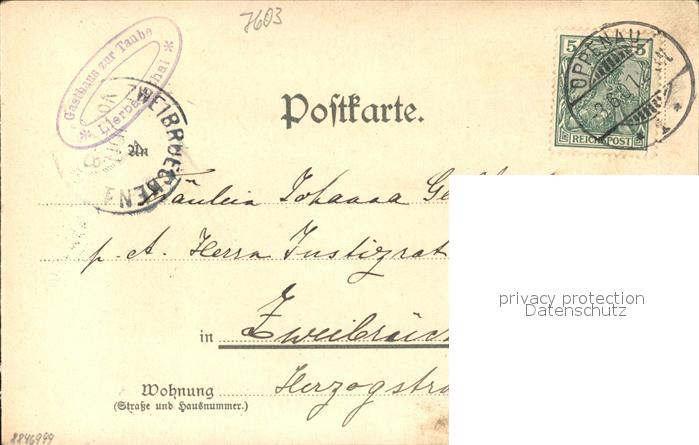 7603
Gasthaus zur Taube
Postkarte.
OPPENAU
5 5
REICHSPOST
ZWEIBRUECKEN
An
Fräulein Johanna
p. A. Herrn Justizrat
in Zweibrück
Wohnung Herzogstra
(Straße und Hausnummer.)
privacy protection
Datenschutz
8846999